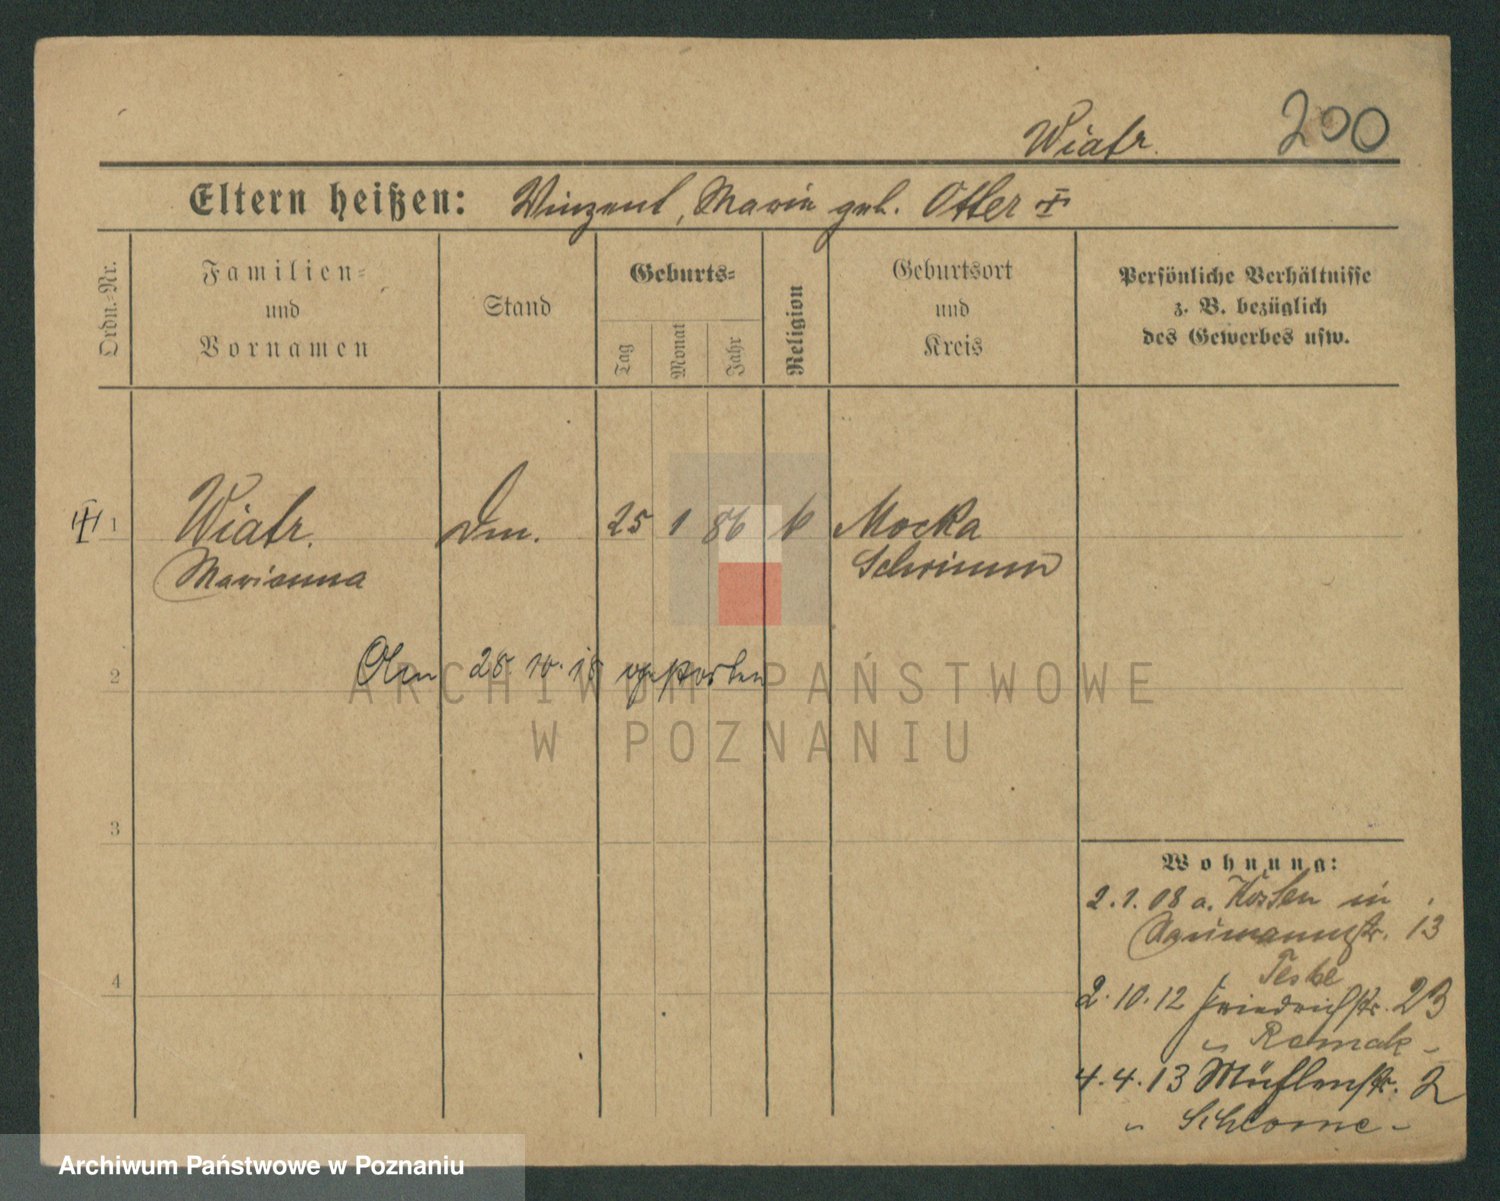 Wiatr.
200
Eltern heißen: Winzent, Marie geb. Otter
Ordn.-Nr.
Familien-
und
Vornamen
Stand
Geburts-
Tag
Monat
Jahr
Religion
Geburtsort
und
Kreis
Persönliche Verhältnisse
z. B. bezüglich
des Gewerbes usw.
1
Wiatr.
Marianna
Dm.
25
1
86
k
Mocka
Schrimm
2
Am 28. 10. 18 gestorben
ARCHIWUM PAŃSTWOWE
W POZNANIU
3
Wohnung:
2.1.08 a. Kosten in
Naumannstr. 13
4
2.10.12 Friedrichstr. 23
4.4.13 Mühlenstr. 2
Archiwum Państwowe w Poznaniu